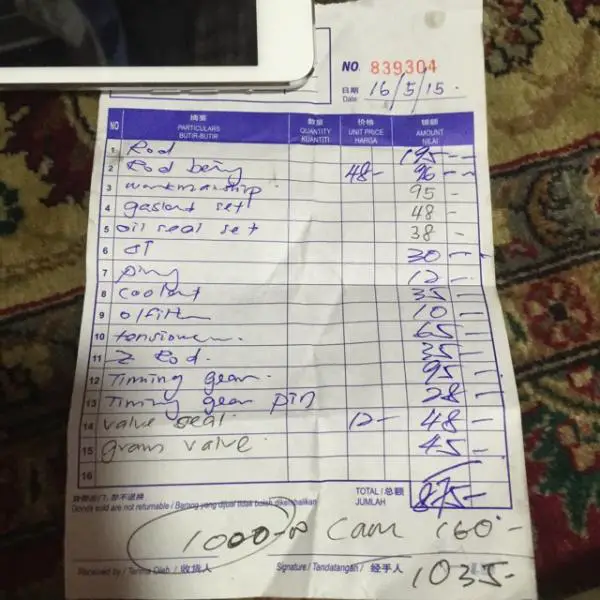 NO. 839304
日期 Date 16/5/15.
NO 摘要 PARTICULARS BUTIR-BUTIR 数量 QUANTITY KUANTITI 价格 UNIT PRICE HARGA 银额 AMOUNT NILAI
1 Rod 195--
2 Rod being 48- 96--
3 workmanship 95 -
4 gasket set 48 -
5 oil seal set 38 -
6 30 --
7 12 -
8 coolant 35 -
9 10 -
10 65 -
11 2 Rod. 35 -
12 Timing gear. 95 -
13 Timing gear pin 28 -
14 valve seal. 12- 48 -
15 valve 45 -
16
Goods sold are not returnable / Barang yang dijual tidak boleh dikembalikan
TOTAL / 总额 JUMLAH 875-
1000-00 Cam 160-
Received by / Terima Oleh / 收货人 Signature / Tandatangan / 经手人 1035-